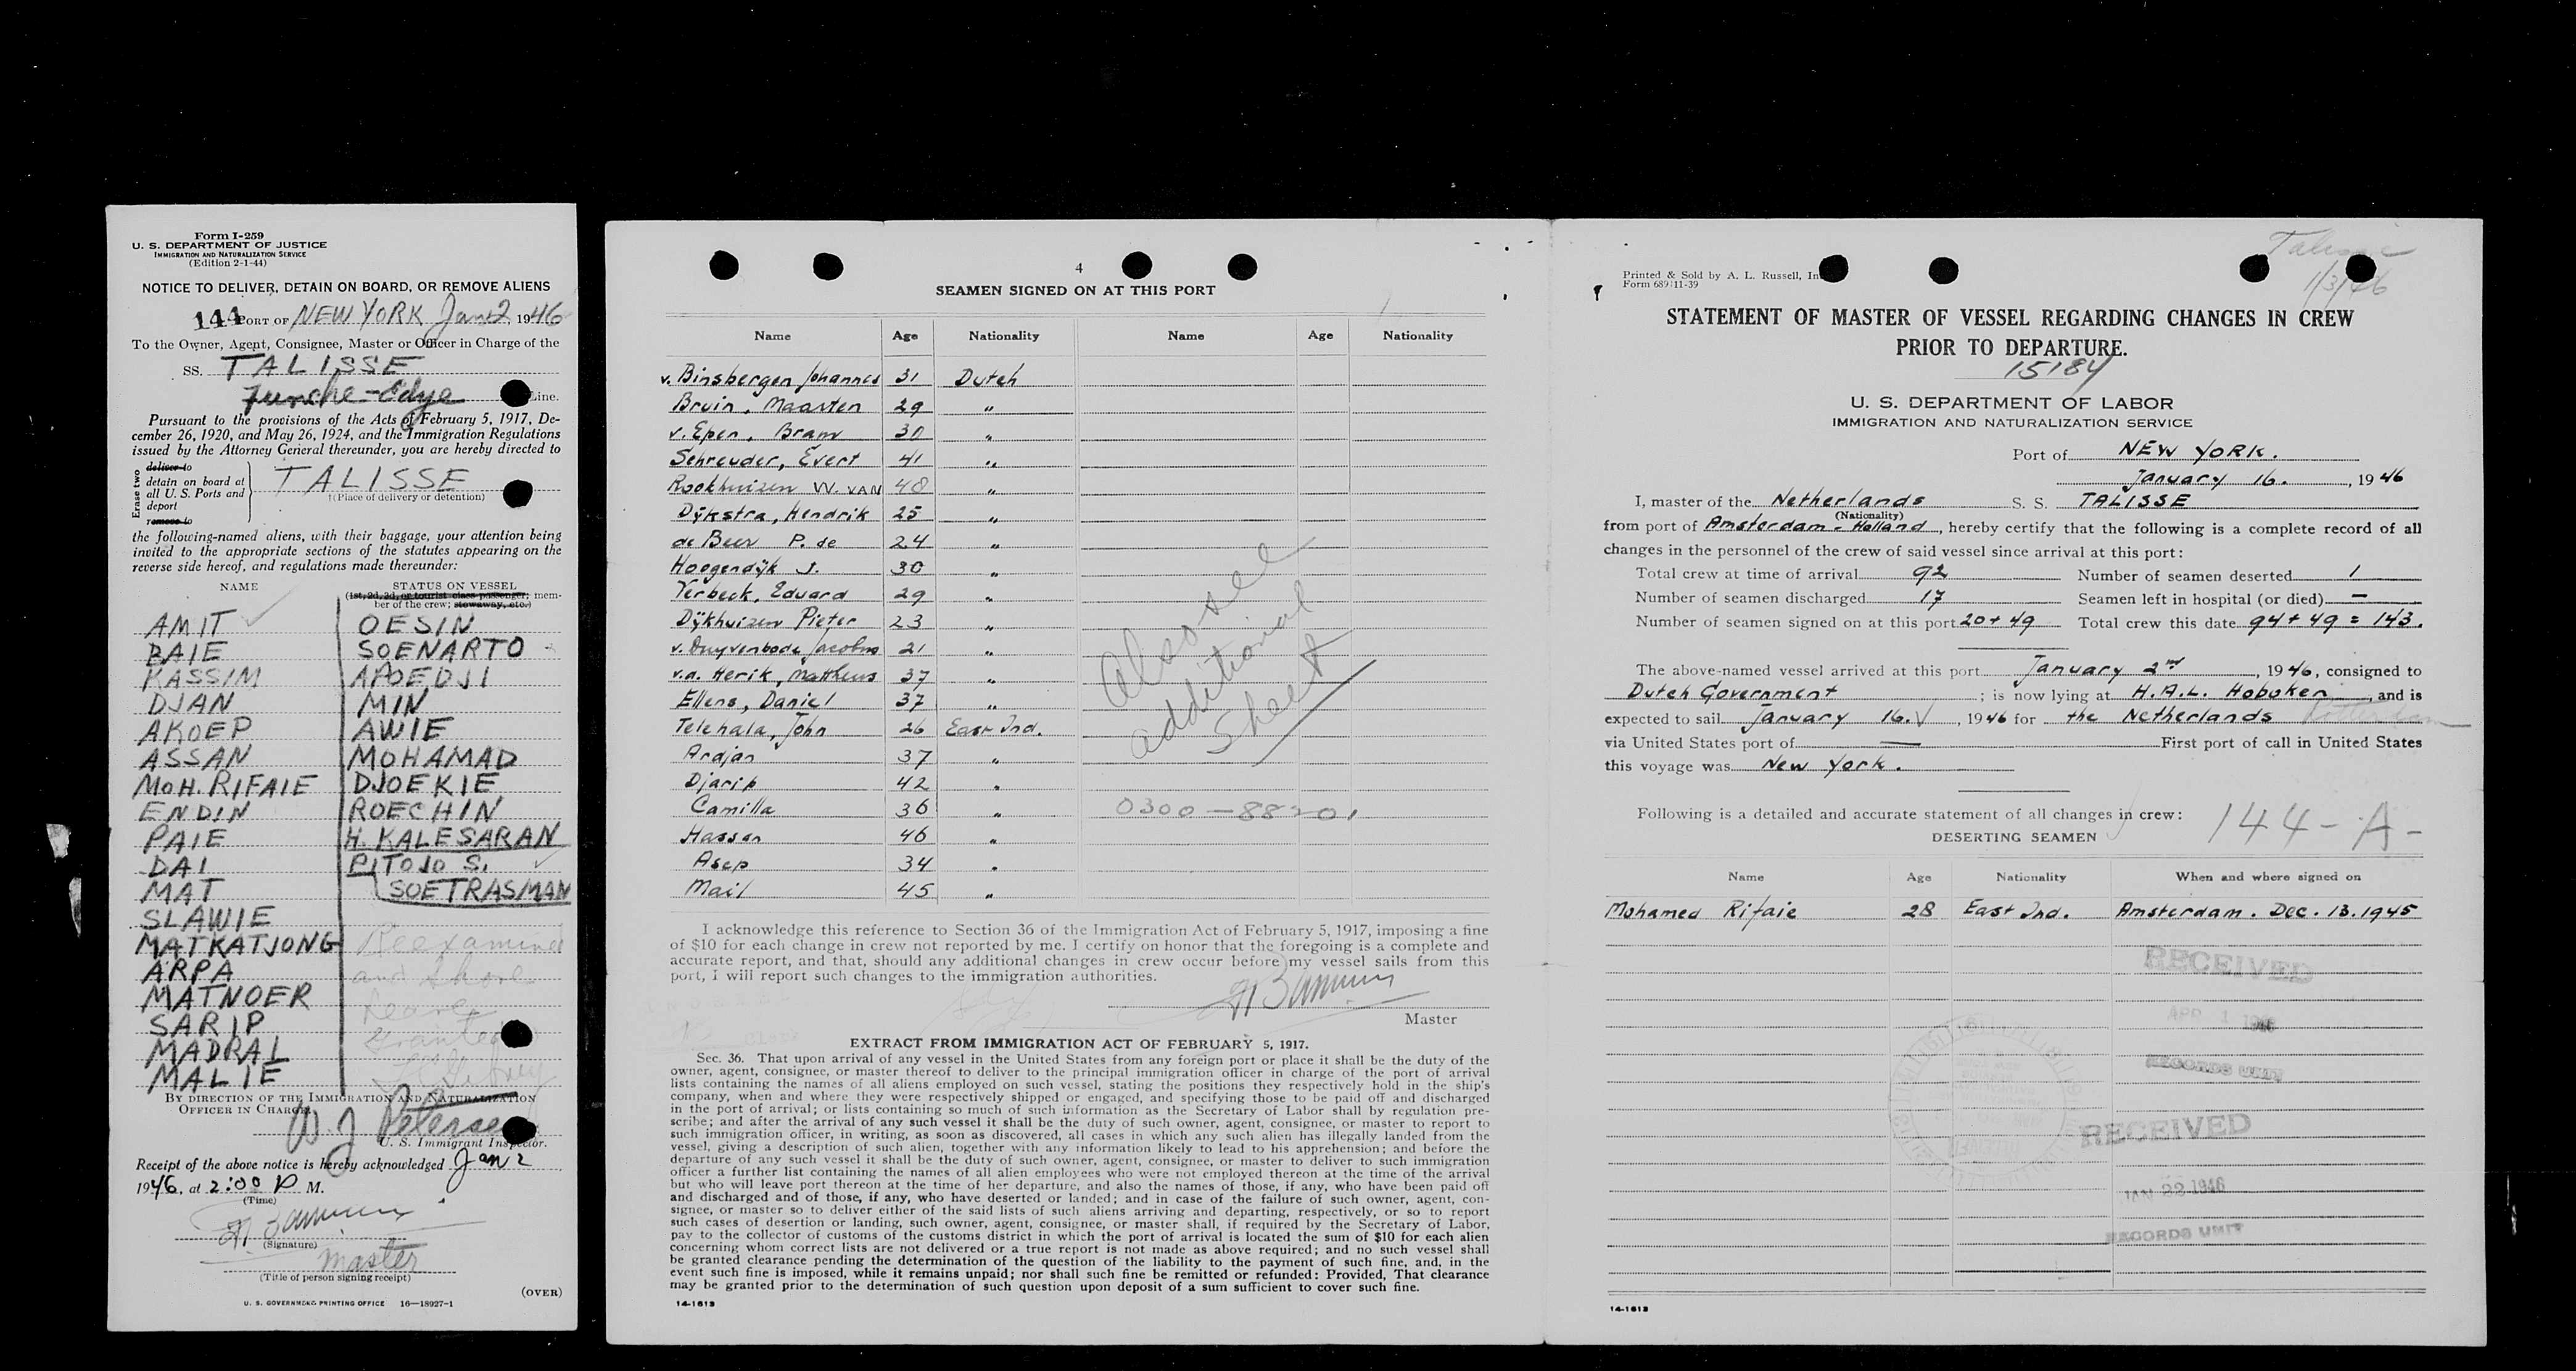 Form I-259
U. S. DEPARTMENT OF JUSTICE
IMMIGRATION AND NATURALIZATION SERVICE
(Edition 2-1-44)
NOTICE TO DELIVER, DETAIN ON BOARD, OR REMOVE ALIENS
144 PORT OF NEW YORK Jan 2, 1946
To the Owner, Agent, Consignee, Master or Officer in Charge of the
SS. TALISSE
Funche-Edye Line.
Pursuant to the provisions of the Acts of February 5, 1917, De-
cember 26, 1920, and May 26, 1924, and the Immigration Regulations
issued by the Attorney General thereunder, you are hereby directed to
Erase two
deliver to
detain on board at
all U. S. Ports and
deport
remove to
TALISSE
(Place of delivery or detention)
the following-named aliens, with their baggage, your attention being
invited to the appropriate sections of the statutes appearing on the
reverse side hereof, and regulations made thereunder:
NAME STATUS ON VESSEL
(1st, 2d, 3d, or tourist class passenger; mem-
ber of the crew; stowaway, etc.)
AMIT OESIN
BAIE SOENARTO
KASSIM APOEDJI
DJAN MIN
AKOEP AWIE
ASSAN MOHAMAD
MOH. RIFAIE DJOEKIE
ENDIN ROECHIN
PAIE H. KALESARAN
DAI PITOJO S.
MAT SOETRASMAN
SLAWIE
MATKATJONG Reexamined
ARPA and shore
MATNOER leave
SARIP granted
MADRAL
MALIE
BY DIRECTION OF THE IMMIGRATION AND NATURALIZATION
OFFICER IN CHARGE
W J Petersen
U. S. Immigrant Inspector.
Receipt of the above notice is hereby acknowledged Jan 2
1946, at 2:00 P M.
(Time)
(Signature)
master
(Title of person signing receipt)
(OVER)
U. S. GOVERNMENT PRINTING OFFICE 16—18927-1
4
SEAMEN SIGNED ON AT THIS PORT
Name Age Nationality Name Age Nationality
v. Binsbergen Johannes 31 Dutch
Bruin, Maarten 29 "
v. Epen, Bram 30 "
Schreuder, Evert 41 "
Rookhuizen W. VAN 48 "
Dijkstra, Hendrik 25 "
de Beer P. de 24 "
Hoogendijk J. 30 "
Verbeck, Eduard 29 "
Dijkhuizen Pieter 23 "
v. Duyvenbode Jacobus 21 "
v.d. Herik, Mattheus 37 "
Ellens, Daniel 37 "
Telehala, John 26 East Ind.
Ardjan 37 "
Djarip 42 "
Camilla 36 "
Hassan 46 "
Asep 34 "
Mail 45 "
Also see
additional
sheet
0300—88201
I acknowledge this reference to Section 36 of the Immigration Act of February 5, 1917, imposing a fine
of $10 for each change in crew not reported by me. I certify on honor that the foregoing is a complete and
accurate report, and that, should any additional changes in crew occur before my vessel sails from this
port, I will report such changes to the immigration authorities.
Master
EXTRACT FROM IMMIGRATION ACT OF FEBRUARY 5, 1917.
Sec. 36. That upon arrival of any vessel in the United States from any foreign port or place it shall be the duty of the
owner, agent, consignee, or master thereof to deliver to the principal immigration officer in charge of the port of arrival
lists containing the names of all aliens employed on such vessel, stating the positions they respectively hold in the ship's
company, when and where they were respectively shipped or engaged, and specifying those to be paid off and discharged
in the port of arrival; or lists containing so much of such information as the Secretary of Labor shall by regulation pre-
scribe; and after the arrival of any such vessel it shall be the duty of such owner, agent, consignee, or master to report to
such immigration officer, in writing, as soon as discovered, all cases in which any such alien has illegally landed from the
vessel, giving a description of such alien, together with any information likely to lead to his apprehension; and before the
departure of any such vessel it shall be the duty of such owner, agent, consignee, or master to deliver to such immigration
officer a further list containing the names of all alien employees who were not employed thereon at the time of the arrival
but who will leave port thereon at the time of her departure, and also the names of those, if any, who have been paid off
and discharged and of those, if any, who have deserted or landed; and in case of the failure of such owner, agent, con-
signee, or master so to deliver either of the said lists of such aliens arriving and departing, respectively, or so to report
such cases of desertion or landing, such owner, agent, consignee, or master shall, if required by the Secretary of Labor,
pay to the collector of customs of the customs district in which the port of arrival is located the sum of $10 for each alien
concerning whom correct lists are not delivered or a true report is not made as above required; and no such vessel shall
be granted clearance pending the determination of the question of the liability to the payment of such fine, and, in the
event such fine is imposed, while it remains unpaid; nor shall such fine be remitted or refunded: Provided, That clearance
may be granted prior to the determination of such question upon deposit of a sum sufficient to cover such fine.
14-1613
Talisse
1/3/46
Printed & Sold by A. L. Russell, In
Form 689 11-39
STATEMENT OF MASTER OF VESSEL REGARDING CHANGES IN CREW
PRIOR TO DEPARTURE.
15184
U. S. DEPARTMENT OF LABOR
IMMIGRATION AND NATURALIZATION SERVICE
Port of NEW YORK.
January 16., 1946
I, master of the Netherlands S. S. TALISSE
(Nationality)
from port of Amsterdam - Holland, hereby certify that the following is a complete record of all
changes in the personnel of the crew of said vessel since arrival at this port:
Total crew at time of arrival 92 Number of seamen deserted 1
Number of seamen discharged 17 Seamen left in hospital (or died) —
Number of seamen signed on at this port 20 + 49 Total crew this date 94 + 49 = 143.
The above-named vessel arrived at this port January 2nd, 1946, consigned to
Dutch Government; is now lying at H.A.L. Hoboken, and is
expected to sail January 16., 1946 for the Netherlands Rotterdam
via United States port of — First port of call in United States
this voyage was New York.
Following is a detailed and accurate statement of all changes in crew:
144-A-
DESERTING SEAMEN
Name Age Nationality When and where signed on
Mohamed Rifaie 28 East Ind. Amsterdam. Dec. 13. 1945
RECEIVED
APR 1 1946
RECORDS UNIT
RECEIVED
JAN 22 1946
RECORDS UNIT
14-1613